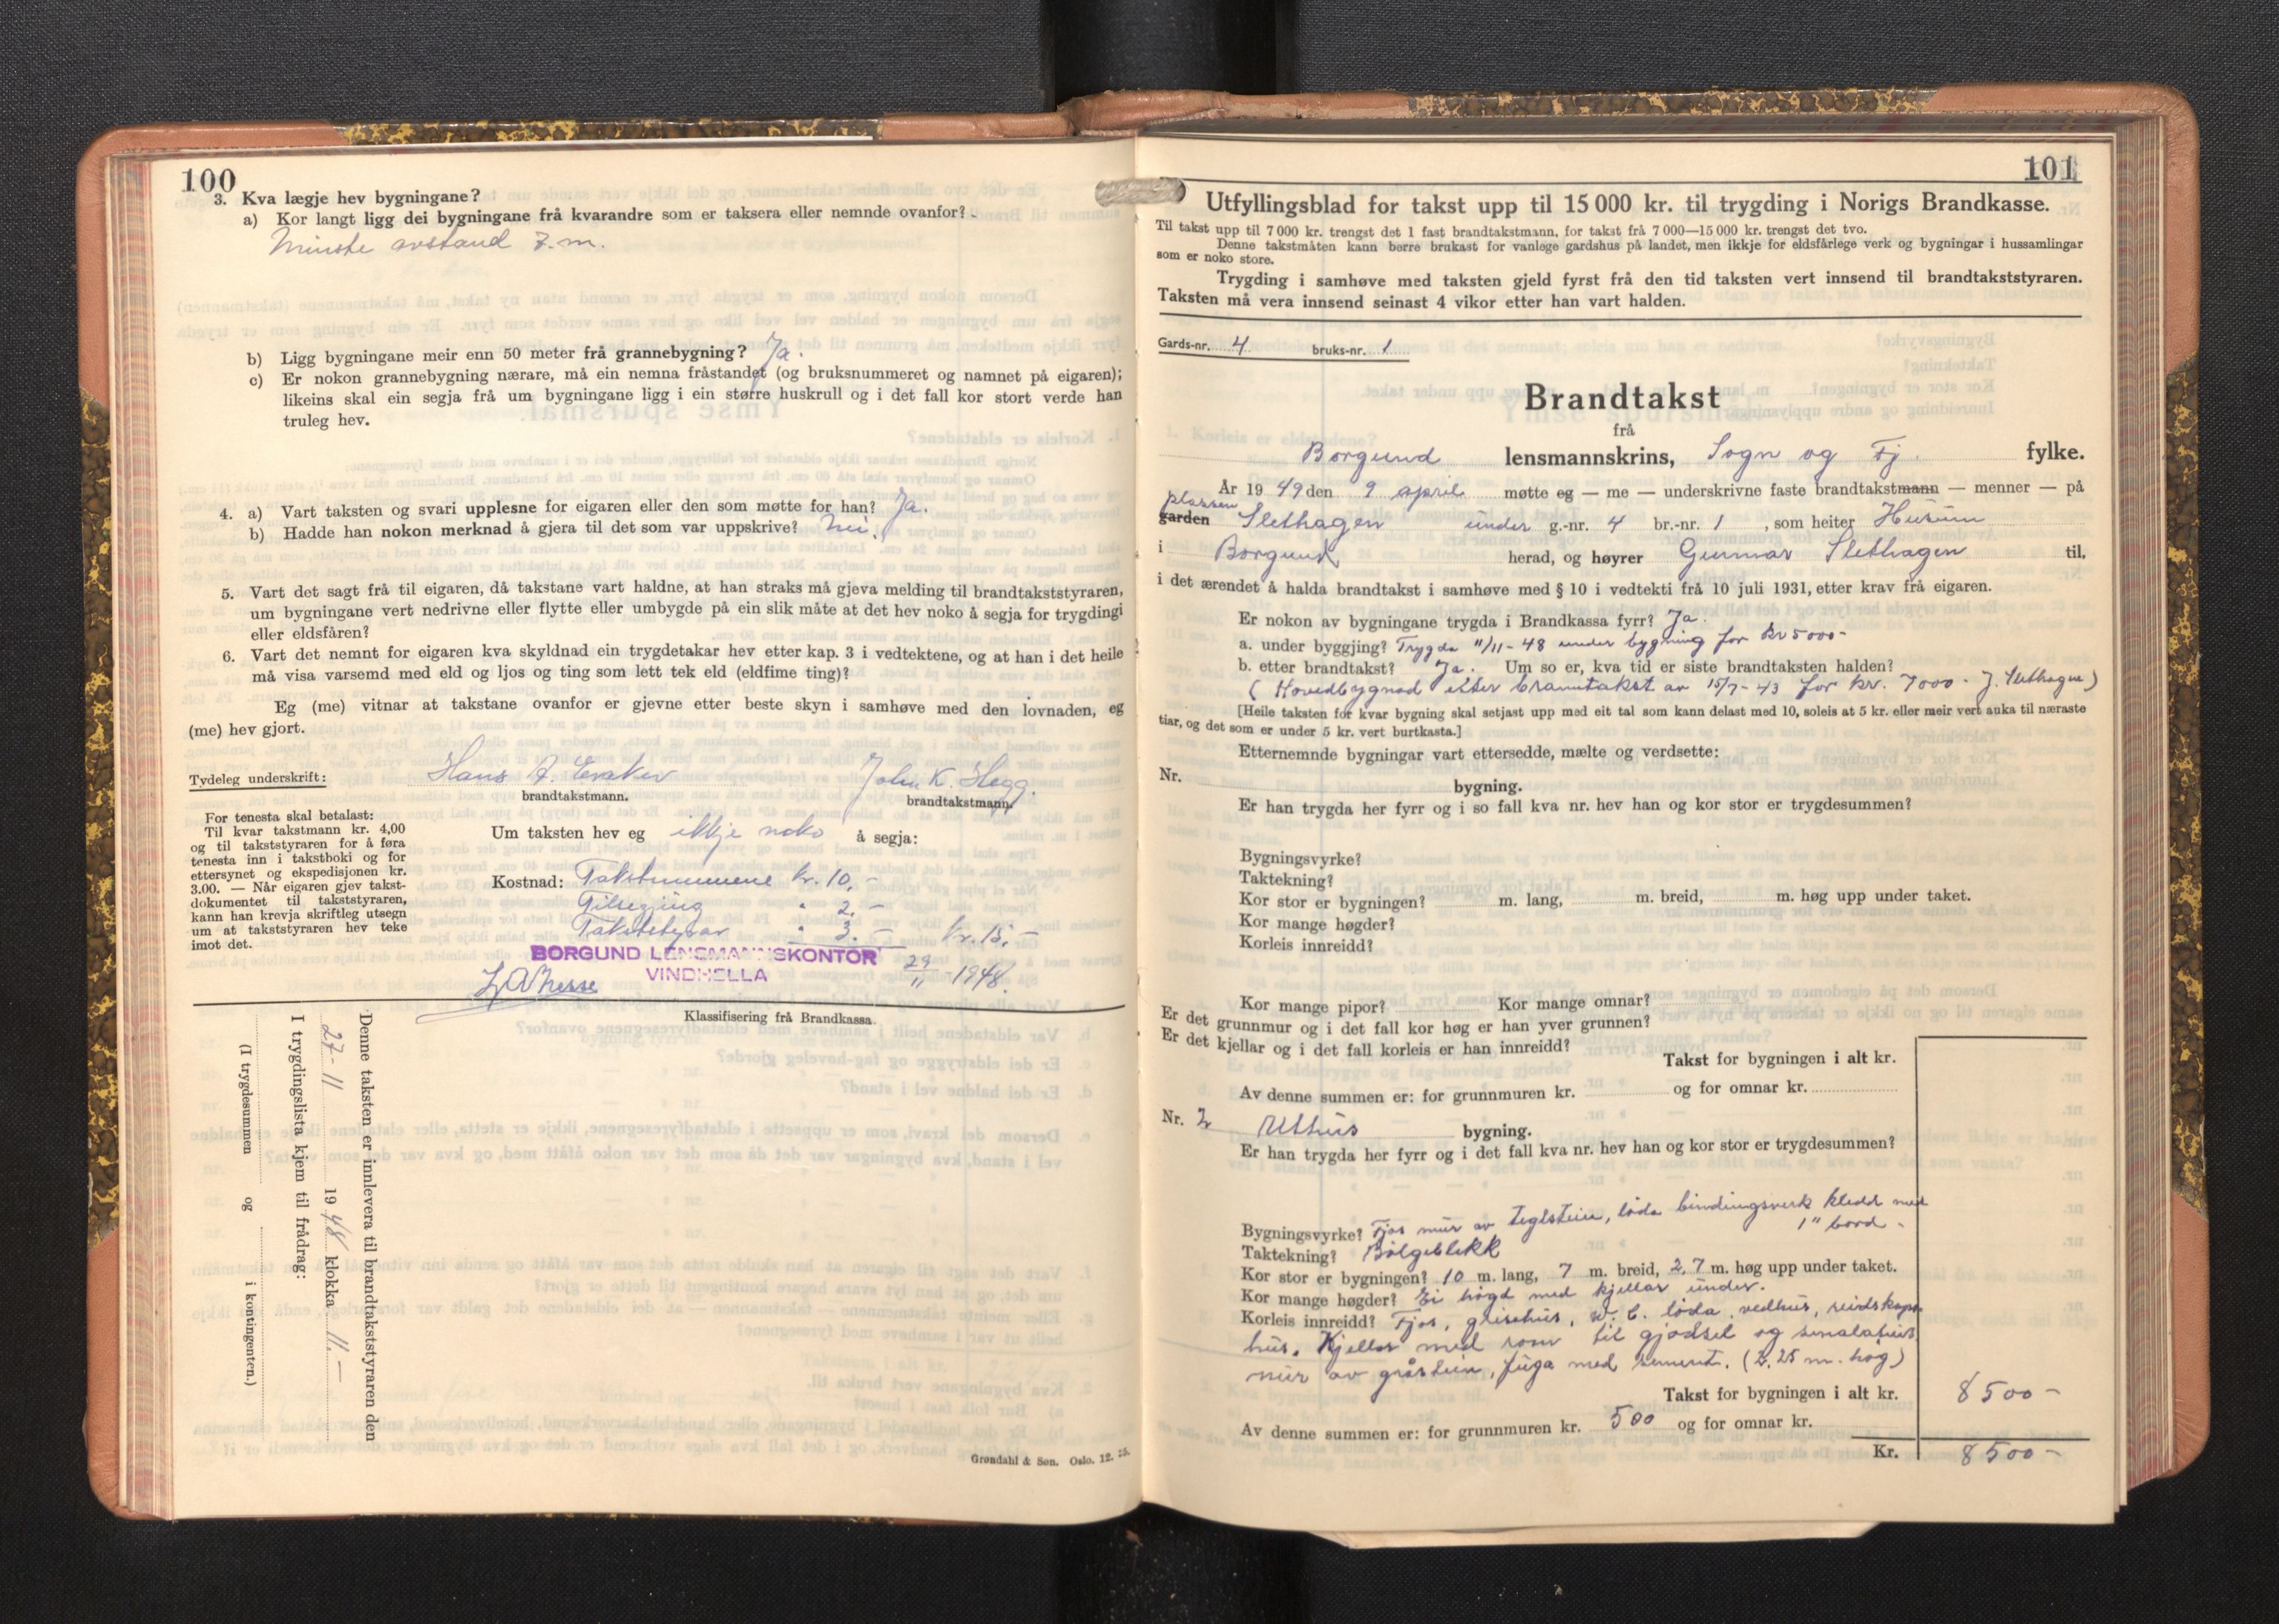 100
3. Kva lægje hev bygningane?
a) Kor langt ligg dei bygningane frå kvarandre som er taksera eller nemnde ovanfor?
Minste avstand 7. m.
b) Ligg bygningane meir enn 50 meter frå grannebygning? Ja.
c) Er nokon grannebygning nærare, må ein nemna fråstandet (og bruksnummeret og namnet på eigaren);
likeins skal ein segja frå um bygningane ligg i ein større huskrull og i det fall kor stort verde han
truleg hev.
4. a) Vart taksten og svari upplesne for eigaren eller den som møtte for han? Ja.
b) Hadde han nokon merknad å gjera til det som var uppskrive? Nei.
5. Vart det sagt frå til eigaren, då takstane vart haldne, at han straks må gjeva melding til brandtakststyraren,
um bygningane vert nedrivne eller flytte eller umbygde på ein slik måte at det hev noko å segja for trygdingi
eller eldsfåren?
6. Vart det nemnt for eigaren kva skyldnad ein trygdetakar hev etter kap. 3 i vedtektene, og at han i det heile
må visa varsemd med eld og ljos og ting som lett tek eld (eldfime ting)?
Eg (me) vitnar at takstane ovanfor er gjevne etter beste skyn i samhøve med den lovnaden, eg
(me) hev gjort.
Tydeleg underskrift: Hans A. John K. Hegg.
brandtakstmann. brandtakstmann.
For tenesta skal betalast:
Til kvar takstmann kr. 4,00
og til takststyraren for å føra
tenesta inn i takstboki og for
ettersynet og ekspedisjonen kr.
3.00. — Når eigaren gjev takst-
dokumentet til takststyraren,
kann han krevja skriftleg utsegn
um at takststyraren hev teke
imot det.
Um taksten hev eg ikkje noko å segja:
Kostnad: Takstmennene kr. 10,-
" 2.-
Takststyrar " 3.- kr. 15,-
BORGUND LENSMANNSKONTOR
VINDHELLA
29/11 1948.
Klassifisering frå Brandkassa.
Denne taksten er innlevera til brandtakststyraren den
27-11 1948 klokka 11.-
I trygdingslista kjem til frådrag:
(I trygdesummen og i kontingenten.)
Grøndahl & Søn. Oslo. 12.
101
Utfyllingsblad for takst upp til 15 000 kr. til trygding i Norigs Brandkasse.
Til takst upp til 7 000 kr. trengst det 1 fast brandtakstmann, for takst frå 7 000—15 000 kr. trengst det tvo.
Denne takstmåten kann berre brukast for vanlege gardshus på landet, men ikkje for eldsfårlege verk og bygningar i hussamlingar
som er noko store.
Trygding i samhøve med taksten gjeld fyrst frå den tid taksten vert innsend til brandtakststyraren.
Taksten må vera innsend seinast 4 vikor etter han vart halden.
Gards-nr. 4 bruks-nr. 1
Brandtakst
frå
Borgund lensmannskrins, Sogn og Fj. fylke.
År 1949 den 9 april møtte eg — me — underskrivne faste brandtakstmann — menner — på
plassen
garden Slethagen under g.-nr. 4 br.-nr. 1, som heiter Husum
i Borgund herad, og høyrer Gunnar Slethagen til,
i det ærendet å halda brandtakst i samhøve med § 10 i vedtekti frå 10 juli 1931, etter krav frå eigaren.
Er nokon av bygningane trygda i Brandkassa fyrr? Ja.
a. under byggjing? Trygda 11/11-48 under bygning for kr 5000-
b. etter brandtakst? Ja. Um so er, kva tid er siste brandtaksten halden?
(Hovedbygnad etter branntakst av 15/7-43 for kr. 7000- J. Slethagen)
[Heile taksten for kvar bygning skal setjast upp med eit tal som kann delast med 10, soleis at 5 kr. eller meir vert auka til næraste
tiar, og det som er under 5 kr. vert burtkasta.]
Etternemnde bygningar vart ettersedde, mælte og verdsette:
Nr. bygning.
Er han trygda her fyrr og i so fall kva nr. hev han og kor stor er trygdesummen?
Bygningsvyrke?
Taktekning?
Kor stor er bygningen? m. lang, m. breid, m. høg upp under taket.
Kor mange høgder?
Korleis innreidd?
Kor mange pipor? Kor mange omnar?
Er det grunnmur og i det fall kor høg er han yver grunnen?
Er det kjellar og i det fall korleis er han innreidd?
Takst for bygningen i alt kr.
Av denne summen er: for grunnmuren kr. og for omnar kr.
Nr. 2 Uthus bygning.
Er han trygda her fyrr og i det fall kva nr. hev han og kor stor er trygdesummen?
Bygningsvyrke? Fjos mur av teglstein, løda bindingsverk kledd med
1" bord -
Taktekning? Bølgeblekk
Kor stor er bygningen? 10 m. lang, 7 m. breid, 2,7 m. høg upp under taket.
Kor mange høgder? Ei høgd med kjellar under.
Korleis innreidd? Fjos, grisehus, W. C. løda, vedhus, reidskaps-
hus. Kjellar med rom til gjødsel og
mur av gråstein, fuga med sement. (2,25 m. høg)
Takst for bygningen i alt kr. 8500-
Av denne summen er: for grunnmuren kr. 500 og for omnar kr.
Kr. 8500-